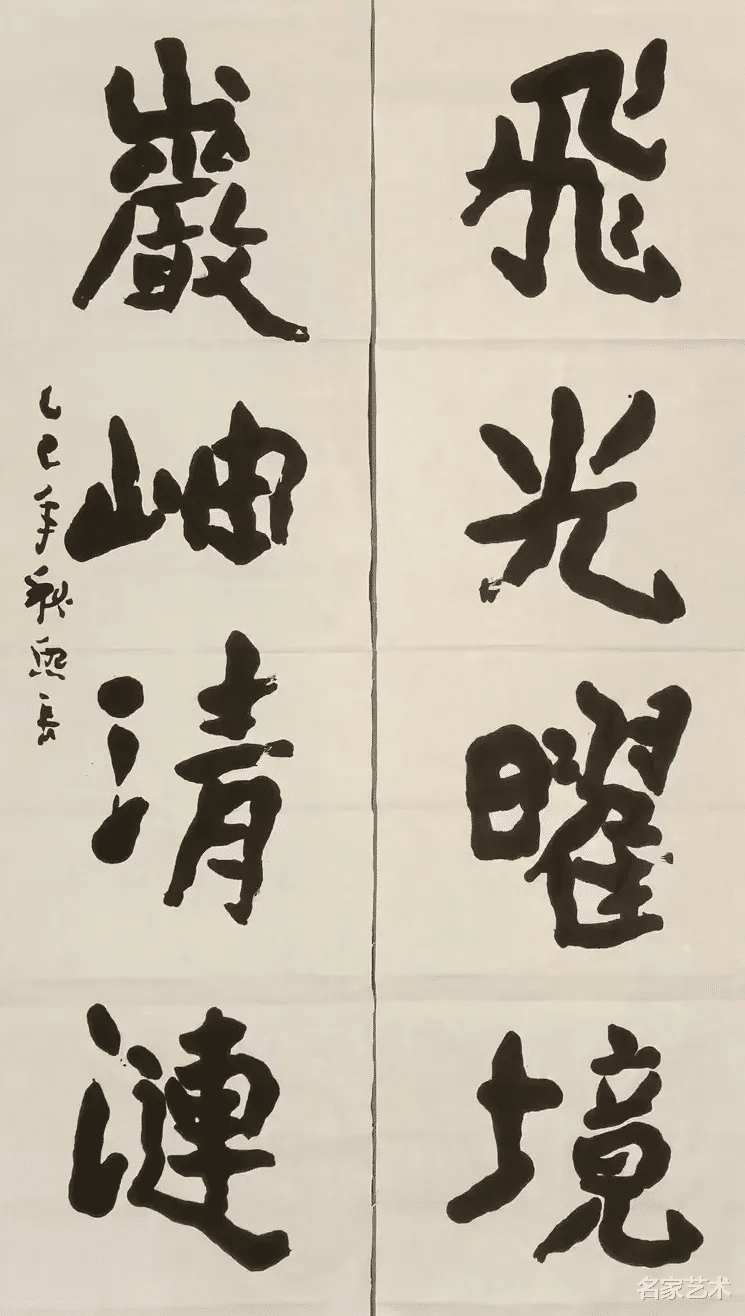 飛光曜境
巖岫清漣
乙巳年秋熙
名家艺术